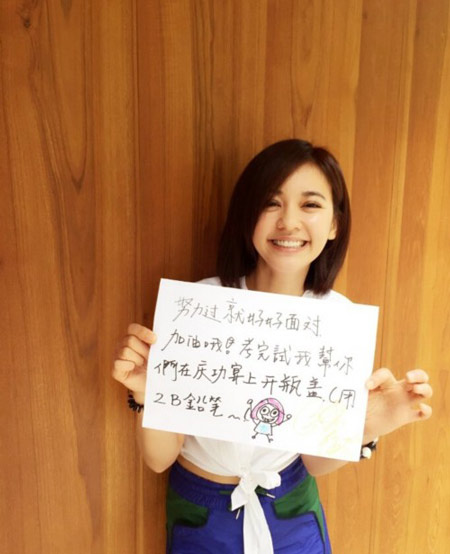 努力过就好好面对.
加油哦!考完試我幫你
們在庆功算上开瓶盖.(用
2B鉛笔~